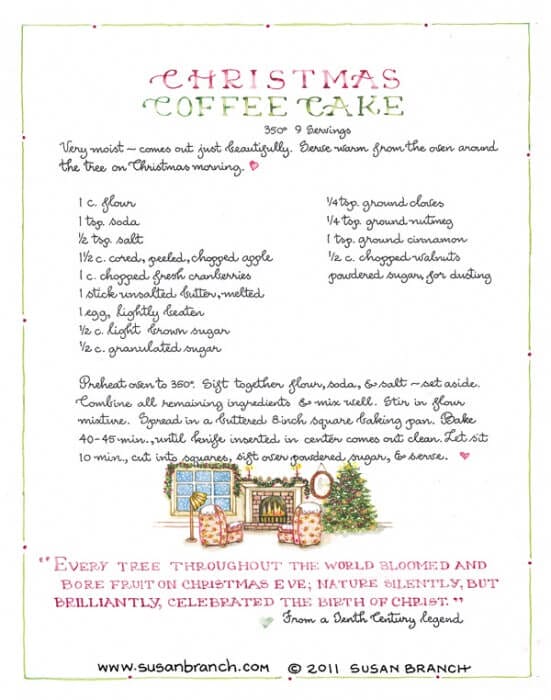 CHRISTMAS
COFFEE CAKE
350° 9 Servings
Very moist ~ comes out just beautifully. Serve warm from the oven around
the tree on Christmas morning.
1 c. flour
1 tsp. soda
½ tsp. salt
1½ c. cored, peeled, chopped apple
1 c. chopped fresh cranberries
1 stick unsalted butter, melted
1 egg, lightly beaten
½ c. light brown sugar
½ c. granulated sugar
¼ tsp. ground cloves
¼ tsp. ground nutmeg
1 tsp. ground cinnamon
½ c. chopped walnuts
powdered sugar, for dusting
Preheat oven to 350°. Sift together flour, soda, & salt ~ set aside.
Combine all remaining ingredients & mix well. Stir in flour
mixture. Spread in a buttered 8 inch square baking pan. Bake
40-45 min., until knife inserted in center comes out clean. Let sit
10 min., cut into squares, sift over powdered sugar, & serve.
"EVERY TREE THROUGHOUT THE WORLD BLOOMED AND
BORE FRUIT ON CHRISTMAS EVE; NATURE SILENTLY, BUT
BRILLIANTLY, CELEBRATED THE BIRTH OF CHRIST."
From a Tenth Century legend
www.susanbranch.com © 2011 SUSAN BRANCH